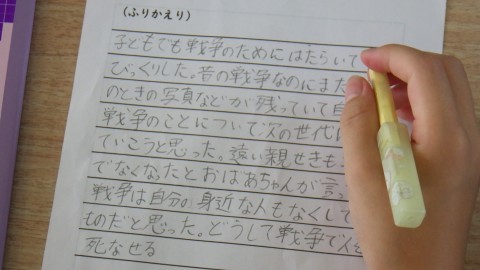 （ふりかえり）
子どもでも戦争のためにはたらいて
びっくりした。昔の戦争なのにまた
のときの写真などが残っていて自
戦争のことについて次の世代に
ていこうと思った。遠い親せきも
でなくなったとおばあちゃんが言っ
戦争は自分の身近な人もなくして
ものだと思った。どうして戦争で人を
死なせる